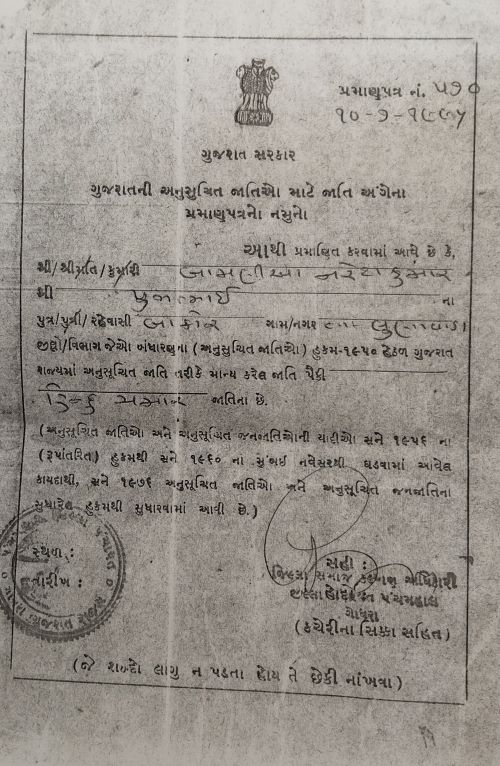 પ્રમાણપત્ર નં. ૫૭૦
૧૦-૭-૧૯૯૫
ગુજરાત સરકાર
ગુજરાતની અનુસુચિત જાતિઓ માટે જાતિ અંગેના
પ્રમાણપત્રનો નમુનો
આથી પ્રમાણિત કરવામાં આવે છે કે,
શ્રી/શ્રીમતિ/કુમારી નરેશકુમાર
શ્રી ના
પુત્ર/પુત્રી/રહેવાસી ગામ/નગર
જીલ્લો/વિભાગ જેઓ બંધારણના (અનુસુચિત જાતિઓ) હુકમ-૧૯૫૦ હેઠળ ગુજરાત
રાજ્યમાં અનુસુચિત જાતિ તરીકે માન્ય કરેલ જાતિ પૈકી
હિન્દુ જાતિના છે.
(અનુસુચિત જાતિઓ અને અનુસૂચિત જનજાતિઓની યાદીઓ સને ૧૯૫૬ ના
(રૂપાંતરિત) હુકમથી સને ૧૯૬૦ ના મુંબઈ નવેસરથી ઘડવામાં આવેલ
કાયદાથી, સને ૧૯૭૬ અનુસુચિત જાતિઓ અને અનુસુચિત જનજાતિના
સુધારેલ હુકમથી સુધારવામાં આવી છે.)
સ્થળ :
તારીખ :
સહી :
જિલ્લા સમાજ કલ્યાણ અધિકારી
જીલ્લા પંચાયત પંચમહાલ
ગોધરા
(કચેરીના સિક્કા સહિત)
(જે શબ્દો લાગુ ન પડતા હોય તે છેકી નાંખવા)